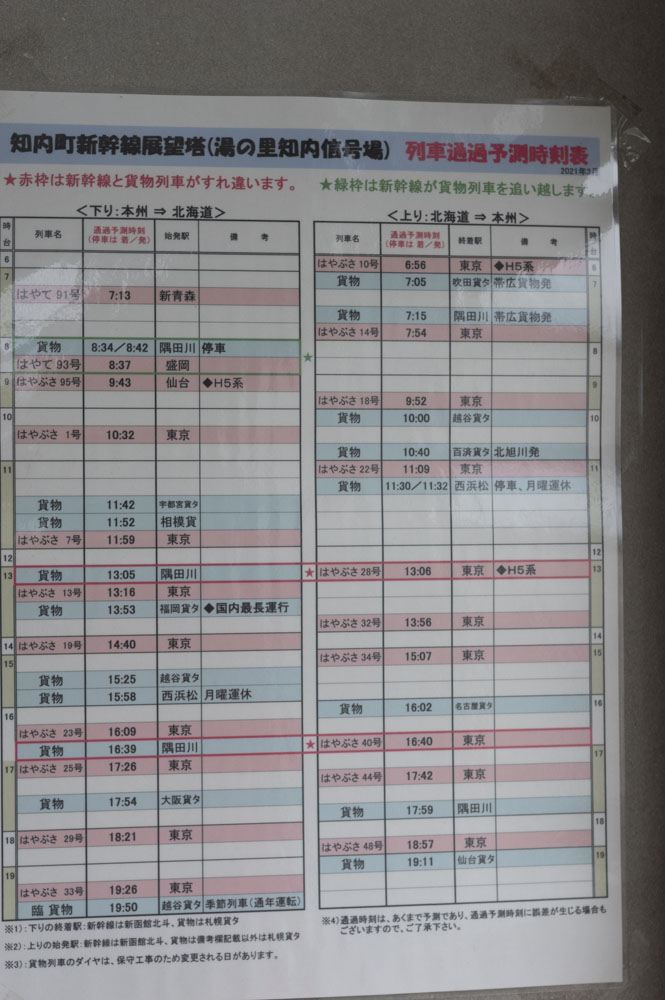 知内町新幹線展望塔(湯の里知内信号場) 列車通過予測時刻表
2021年3月
★赤枠は新幹線と貨物列車がすれ違います。 ★緑枠は新幹線が貨物列車を追い越します
＜下り:本州 ⇒ 北海道＞
時台 列車名 通過予測時刻(停車は 着／発) 始発駅 備 考
6
7
はやて 91号 7:13 新青森
8 貨物 8:34／8:42 隅田川 停車
はやて 93号 8:37 盛岡 ★
9 はやぶさ 95号 9:43 仙台 ◆H5系
10
はやぶさ 1号 10:32 東京
11
貨物 11:42 宇都宮貨タ
貨物 11:52 相模貨
はやぶさ 7号 11:59 東京
12
13 貨物 13:05 隅田川 ★
はやぶさ 13号 13:16 東京
貨物 13:53 福岡貨タ ◆国内最長運行
14 はやぶさ 19号 14:40 東京
15
貨物 15:25 越谷貨タ
貨物 15:58 西浜松 月曜運休
16
はやぶさ 23号 16:09 東京
貨物 16:39 隅田川 ★
17 はやぶさ 25号 17:26 東京
貨物 17:54 大阪貨タ
18 はやぶさ 29号 18:21 東京
19
はやぶさ 33号 19:26 東京
臨 貨物 19:50 越谷貨タ 季節列車(通年運転)
＜上り:北海道 ⇒ 本州＞
列車名 通過予測時刻(停車は 着／発) 終着駅 備 考 時台
はやぶさ 10号 6:56 東京 ◆H5系 6
貨物 7:05 吹田貨タ 帯広貨物発 7
貨物 7:15 隅田川 帯広貨物発
はやぶさ 14号 7:54 東京
8
9
はやぶさ 18号 9:52 東京
貨物 10:00 越谷貨タ 10
貨物 10:40 百済貨タ 北旭川発
はやぶさ 22号 11:09 東京 11
貨物 11:30／11:32 西浜松 停車、月曜運休
12
はやぶさ 28号 13:06 東京 ◆H5系 13
はやぶさ 32号 13:56 東京
14
はやぶさ 34号 15:07 東京 15
貨物 16:02 名古屋貨タ 16
はやぶさ 40号 16:40 東京
17
はやぶさ 44号 17:42 東京
貨物 17:59 隅田川
18
はやぶさ 48号 18:57 東京
貨物 19:11 仙台貨タ 19
※1):下りの終着駅:新幹線は新函館北斗、貨物は札幌貨タ
※2):上りの始発駅:新幹線は新函館北斗、貨物は備考欄記載以外は札幌貨タ
※3):貨物列車のダイヤは、保守工事のため変更される日があります。
※4)通過時刻は、あくまで予測であり、通過予測時刻に誤差が生じる場合も
ございますので、ご了承下さい。